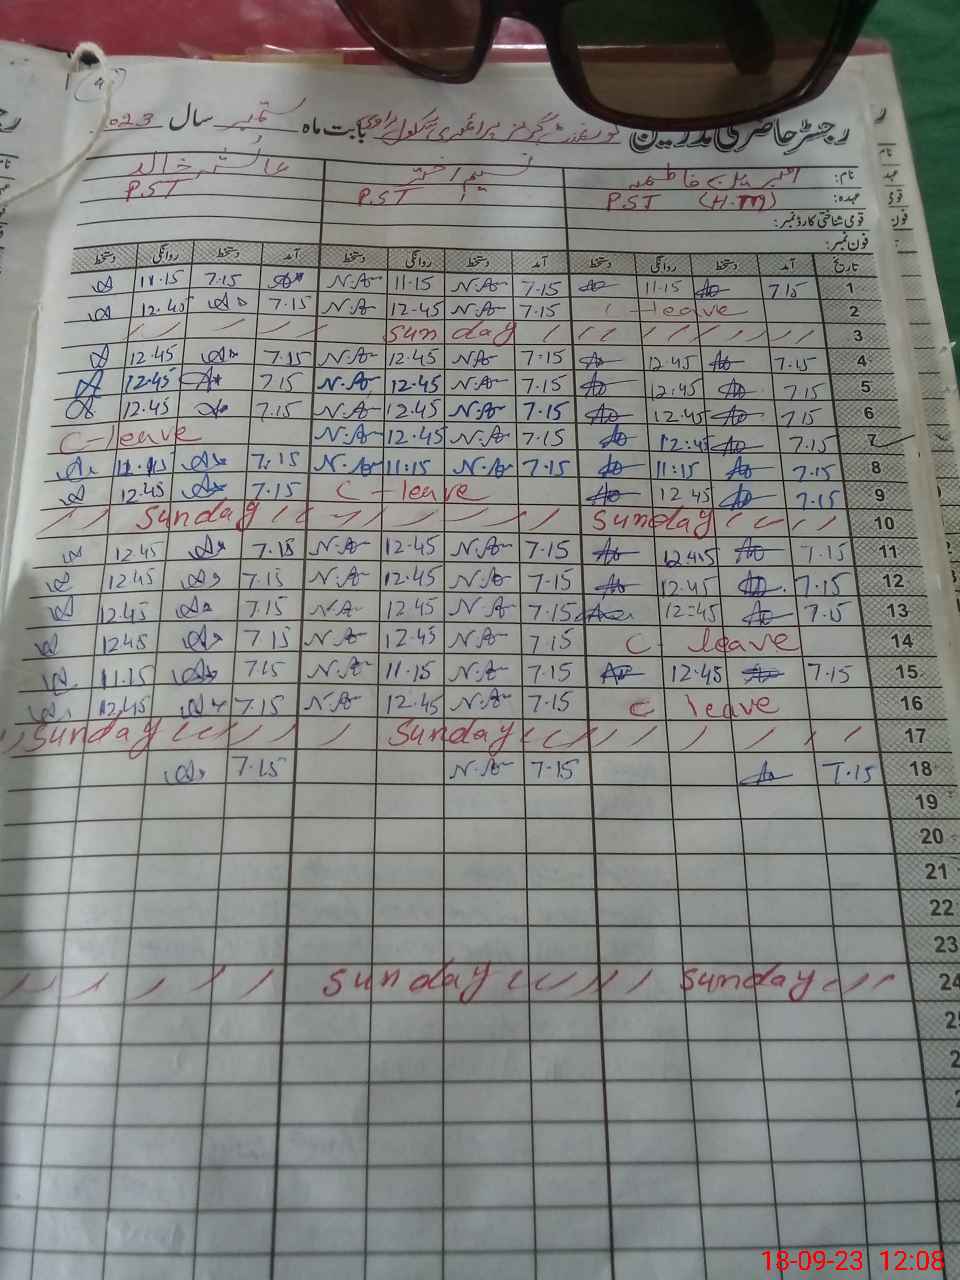 رجسٹر حاضری مدرسین گورنمنٹ گرلز پرائمری سکول بابت ماہ ستمبر سال 2023
نام: نسیم اختر عائشہ خالد
عہدہ: P.ST (H.M) P.ST P.ST
قومی شناختی کارڈ نمبر:
فون نمبر:
تاریخ آمد دستخط روانگی دستخط آمد دستخط روانگی دستخط آمد دستخط روانگی دستخط
1 7.15 11.15 7.15 N.A 11.15 N.A 7.15 11.15
2 C-leave 7.15 N.A 12.45 N.A 7.15 12.45
3 Sunday
4 7.15 12.45 7.15 N.A 12.45 N.A 7.15 12.45
5 7.15 12.45 7.15 N.A 12.45 N.A 7.15 12.45
6 7.15 12.45 7.15 N.A 12.45 N.A 7.15 12.45
7 7.15 12.45 7.15 N.A 12.45 N.A C-leave
8 7.15 11.15 7.15 N.A 11.15 N.A 7.15 11.15
9 7.15 12.45 C-leave 7.15 12.45
10 Sunday Sunday
11 7.15 12.45 7.15 N.A 12.45 N.A 7.15 12.45
12 7.15 12.45 7.15 N.A 12.45 N.A 7.15 12.45
13 7.15 12.45 7.15 N.A 12.45 N.A 7.15 12.45
14 C-leave 7.15 N.A 12.45 N.A 7.15 12.45
15 7.15 12.45 7.15 N.A 11.15 N.A 7.15 11.15
16 C leave 7.15 N.A 12.45 N.A 7.15 12.45
17 Sunday Sunday
18 7.15 7.15 N.A 7.15
19
20
21
22
23
24 Sunday Sunday
18-09-23 12:08